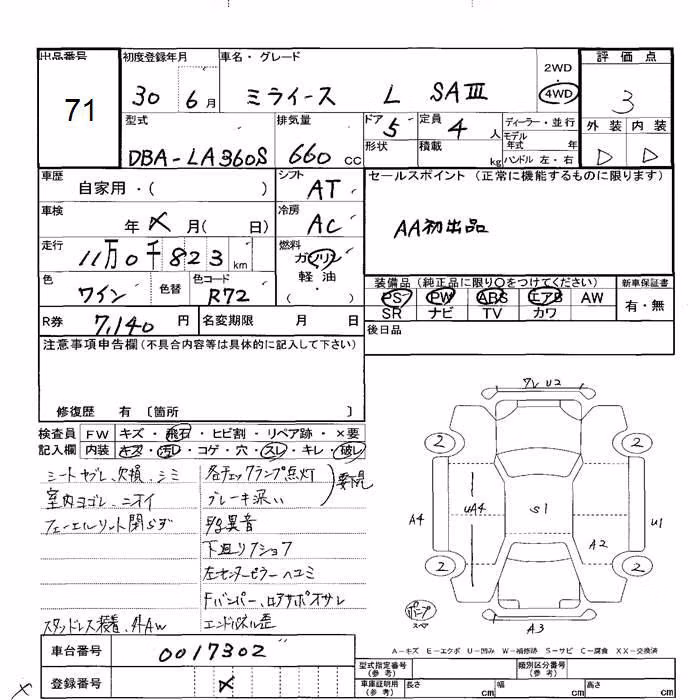 出品番号 初度登録年月 車名・グレード 2WD 評価点
71 30 6月 ミライース L SAⅢ 4WD 3
型式 排気量 ドア 5 定員 4人 ディーラー・並行 外装 内装
DBA-LA360S 660cc 形状 積載 kg モデル年式 年 D D
ハンドル 左・右
車歴 自家用・( ) シフト AT セールスポイント (正常に機能するものに限ります)
車検 年 月( 日) 冷房 AC AA初出品
走行 11万0千823km 燃料 ガソリン・軽油・( )
色 ワイン 色替 色コード R72 装備品 (純正品に限り○をつけてください) 新車保証書
PS PW ABS エアB AW 有・無
SR ナビ TV カワ
R券 7,140円 名変期限 月 日 後日品
注意事項申告欄(不具合内容等は具体的に記入して下さい)
修復歴 有 〔箇所 〕
検査員 FW キズ・飛石・ヒビ割・リペア跡・×要
記入欄 内装 キズ・汚レ・コゲ・穴・スレ・キレ・破レ
シートヤブレ、欠損、シミ 各チェックランプ点灯
室内ヨゴレ、ニオイ ブレーキ深い 要下見
フューエルリット閉らず 異音
下廻りフショク
左センターピラーヘコミ
Fバンパー、ロアサポオサレ
スタッドレス装着、外AW エンドパネル歪
ワレ U2
2 2
A4 UA4 S1 A2 U1
2 2
A3
A-キズ E-エクボ U-凹み W-補修跡 S-サビ C-腐食 XX-交換済
車台番号 0017302
登録番号 ×
型式指定番号(参考) 類別区分番号(参考)
車庫証明用(参考) 長さ cm 幅 cm 高さ cm